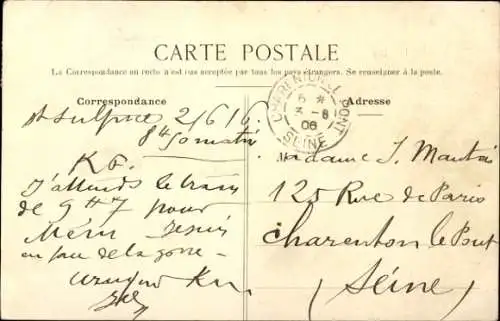 CARTE POSTALE
La Correspondance au recto n'est pas acceptée par tous les pays étrangers. Se renseigner à la poste.
Correspondance
Adresse
CHARENTON LE PONT
6 *
3 - 6
06
SEINE
St Sulpice 2/6/6
8h
K6.
J'attends le train
de 9h 7 pour
Méru
en face de la gare
Madame J.
125 Rue de Paris
Charenton le Pont
(Séine)